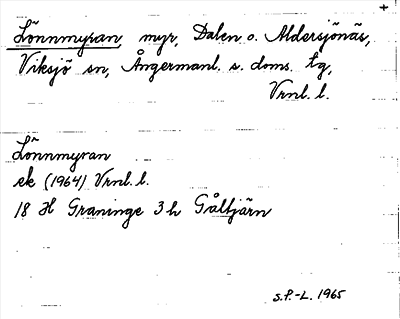 Lönnmyran, myr, Dalen o. Aldersjönäs,
Viksjö sn, Ångermanl. s. doms. tg,
Vrnl. l.
Lönnmyran
ek (1964) Vrnl. l.
18 H Graninge 3 h Gåltjärn
S.P.-L. 1965